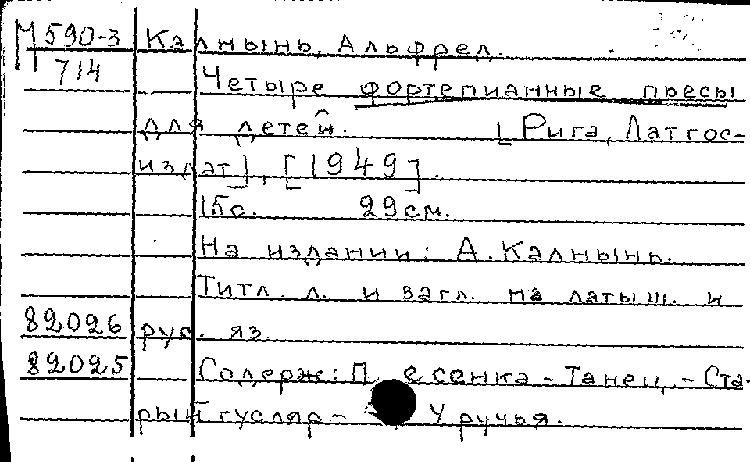 М 590-3 Калнынь, Альфред.
714 Четыре фортепианные пьесы
для детей. [Рига, Латгос-
издат], [1949].
15с. 29см.
На издании: А. Калнынь.
Титл. л. и загл. на латыш. и
82026 рус. яз.
82025 Содерж: Песенка - Танец. - Ста-
рый гусляр - У ручья.